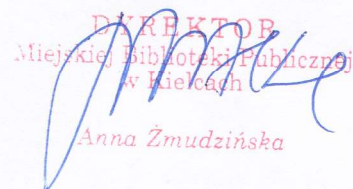 DYREKTOR
Miejskiej Biblioteki Publicznej
w Kielcach
Anna Żmudzińska